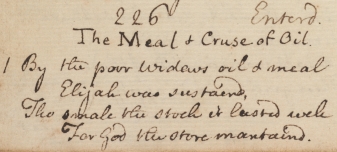 226 Enterd.
The Meal & Cruse of Oil.
1 By the poor widows oil & meal
Elijah was sustaind,
Tho smale the stock it lasted well
For God the store mantaind.